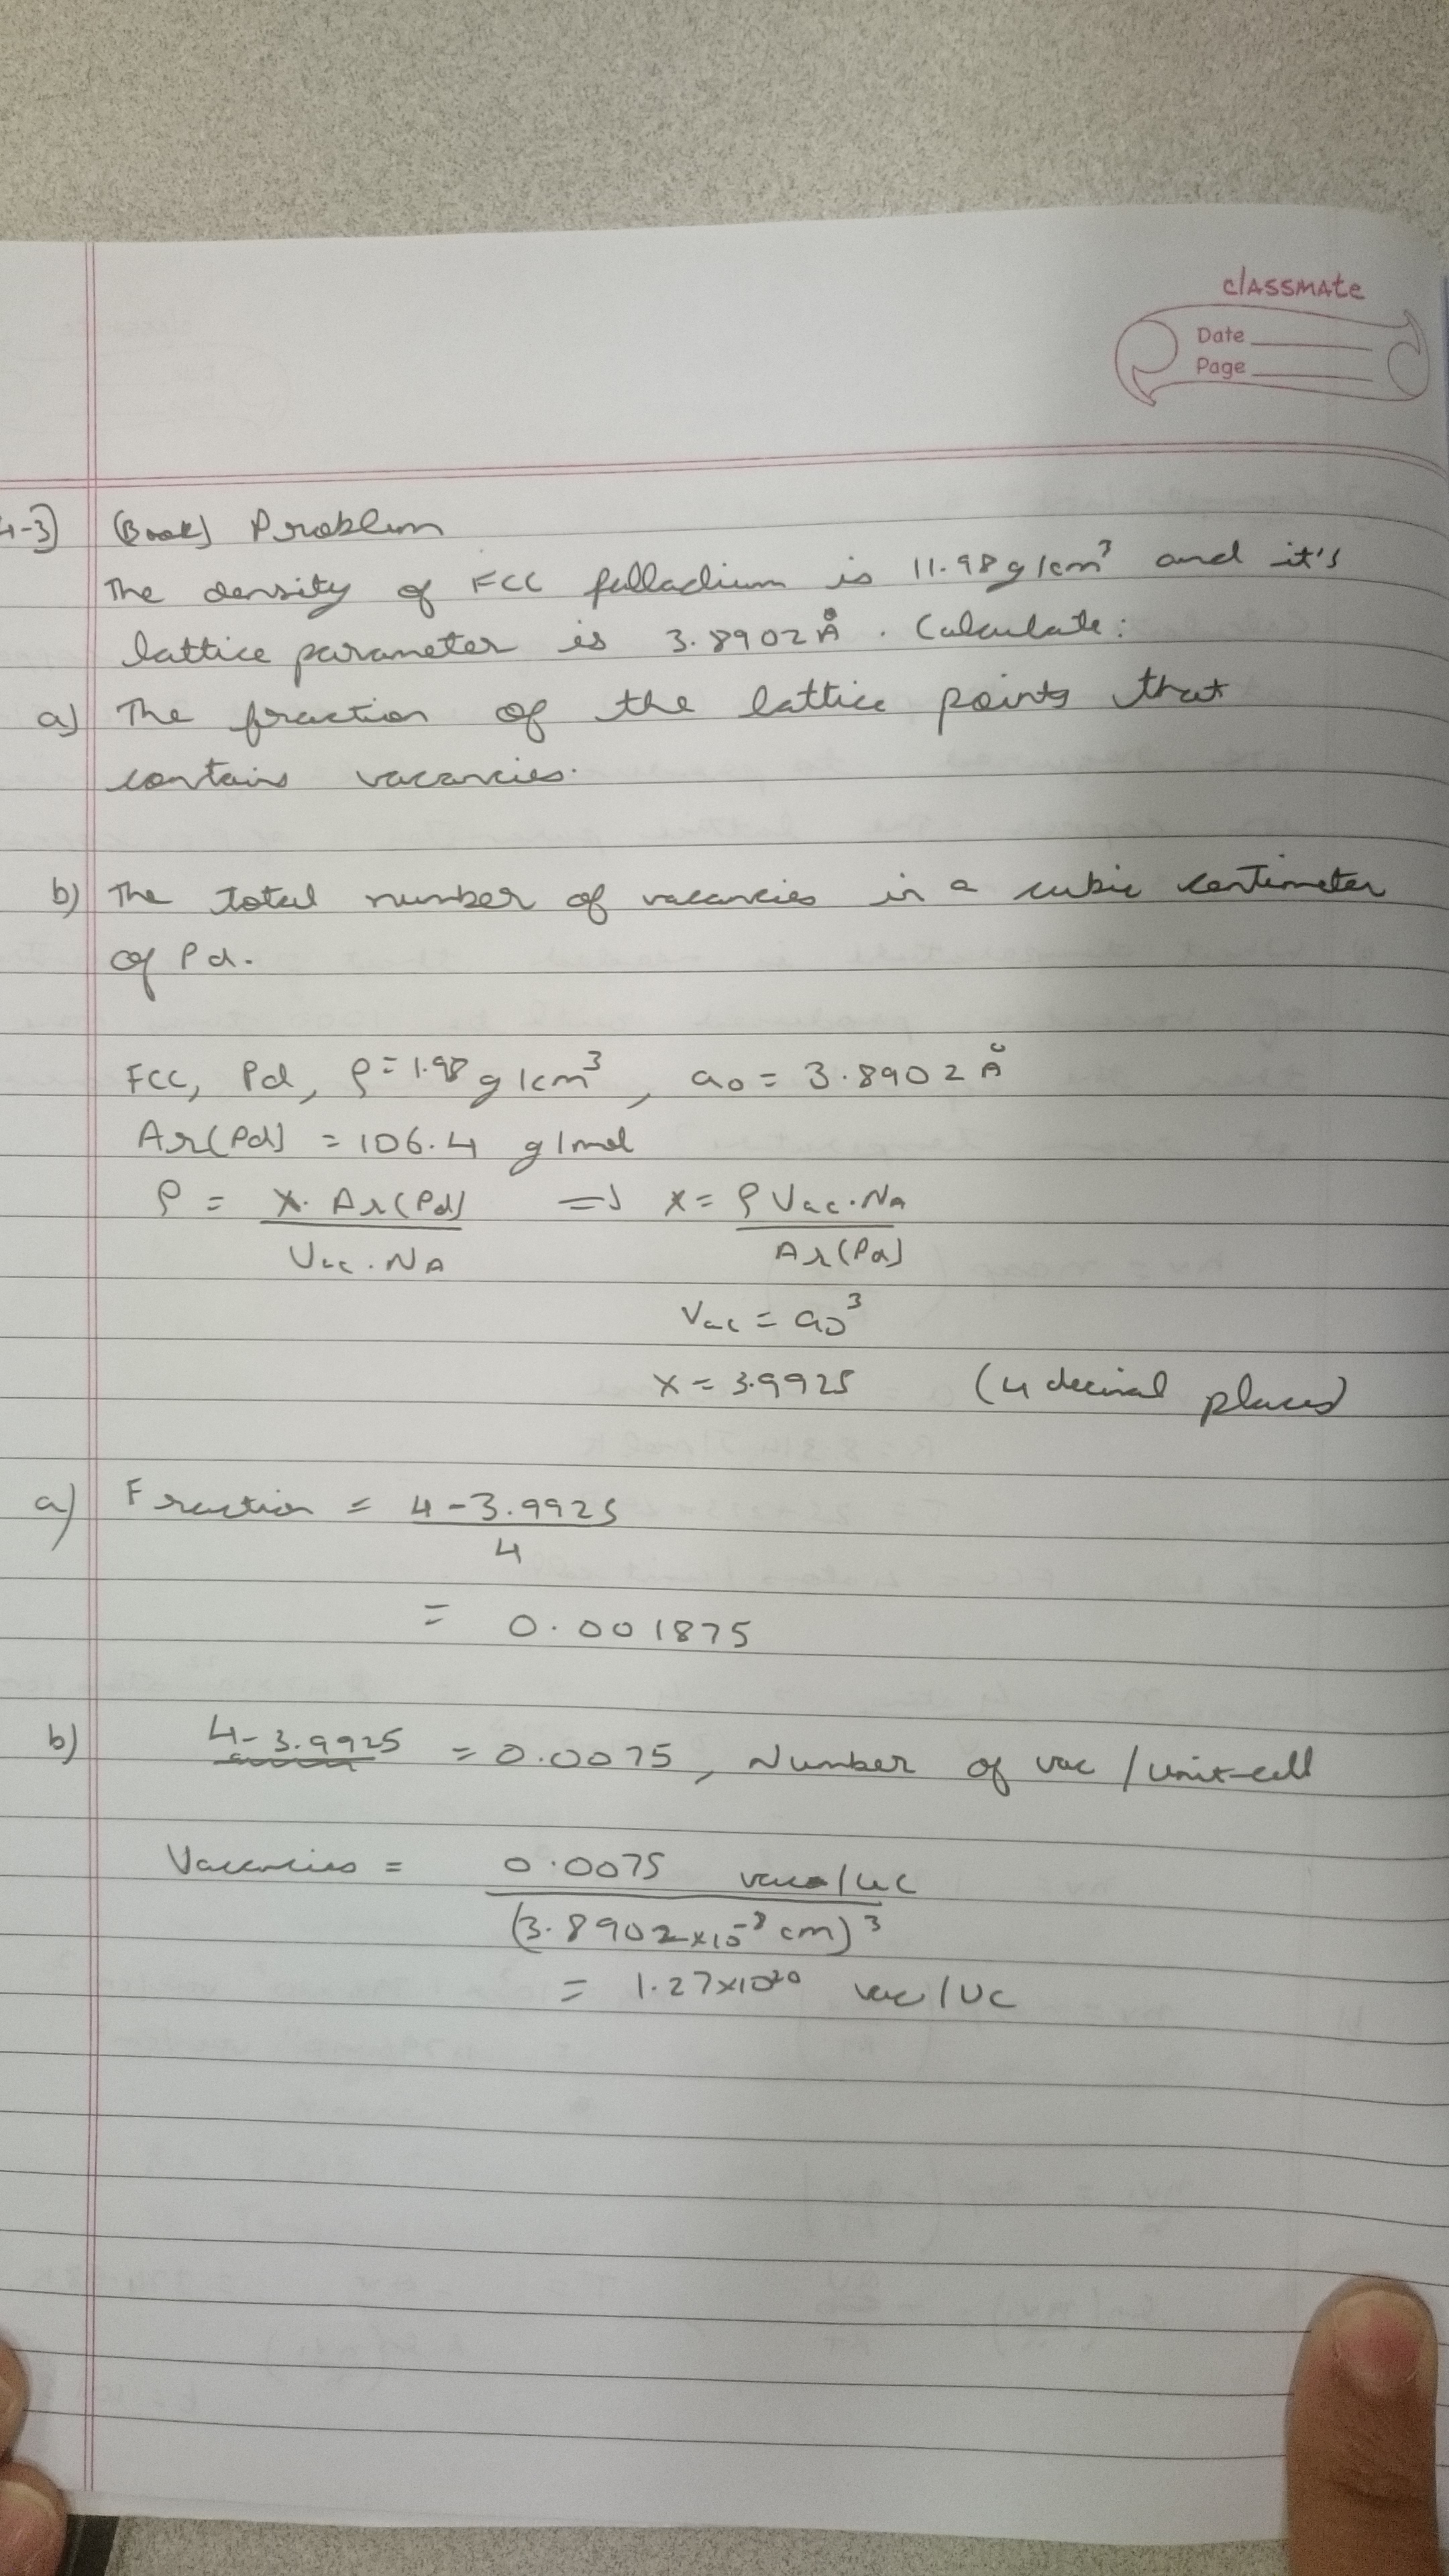 classmate
Date
Page
4-3] (Book) Problem
The density of FCC palladium is 11.98 g/cm³ and it's
lattice parameter is 3.8902 Å. Calculate:
a) The fraction of the lattice points that
contains vacancies.
b) The total number of vacancies in a cubic centimeter
of Pd.
FCC, Pd, ρ = 1.98 g/cm³, a₀ = 3.8902 Å
Ar(Pd) = 106.4 g/mol
ρ = X. Ar(Pd) / Vuc. NA => x = ρ Vuc. NA / Ar(Pd)
Vuc = a₀³
x = 3.9925 (4 decimal places)
a) Fraction = 4-3.9925 / 4
= 0.001875
b) 4-3.9925 = 0.0075, Number of vac/unit-cell
Vacancies = 0.0075 vac/uc / (3.8902×10⁻⁸ cm)³
= 1.27×10²⁰ vac/UC